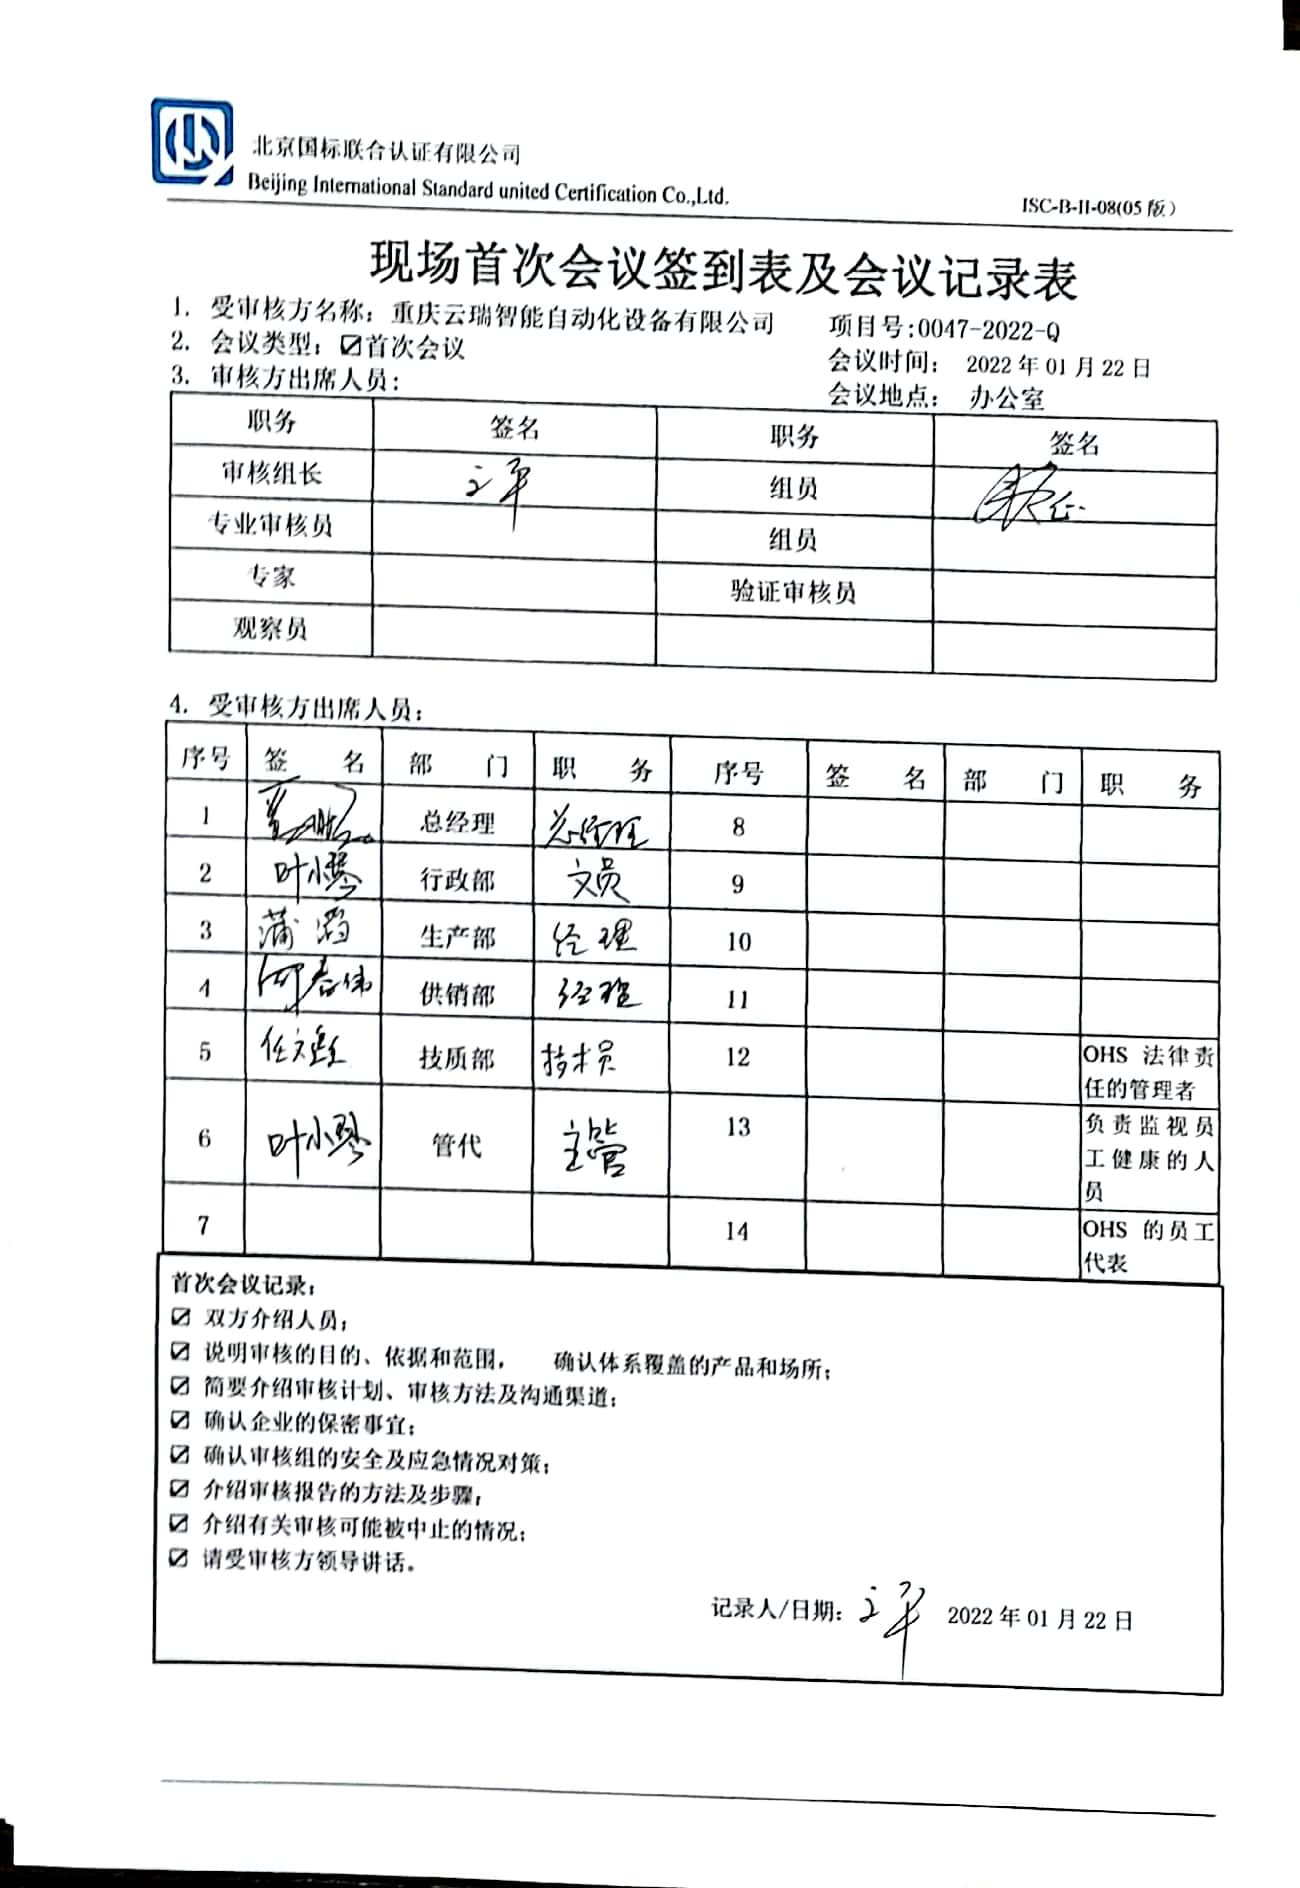 北京国标联合认证有限公司
Beijing International Standard united Certification Co.,Ltd.
ISC-B-II-08(05版)
现场首次会议签到表及会议记录表
1. 受审核方名称：重庆云瑞智能自动化设备有限公司 项目号:0047-2022-Q
2. 会议类型：☑首次会议 会议时间： 2022年01月22日
3. 审核方出席人员： 会议地点： 办公室
职务 签名 职务 签名
审核组长 组员
专业审核员 组员
专家 验证审核员
观察员
4. 受审核方出席人员：
序号 签 名 部 门 职 务 序号 签 名 部 门 职 务
1 总经理 总经理 8
2 叶小琴 行政部 文员 9
3 蒲滔 生产部 经理 10
4 何春伟 供销部 经理 11
5 技质部 技术员 12 OHS 法律责
任的管理者
6 叶小琴 管代 主管 13 负责监视员
工健康的人
员
7 14 OHS 的员工
代表
首次会议记录：
☑ 双方介绍人员；
☑ 说明审核的目的、依据和范围， 确认体系覆盖的产品和场所；
☑ 简要介绍审核计划、审核方法及沟通渠道；
☑ 确认企业的保密事宜；
☑ 确认审核组的安全及应急情况对策；
☑ 介绍审核报告的方法及步骤；
☑ 介绍有关审核可能被中止的情况；
☑ 请受审核方领导讲话。
记录人/日期： 2022年01月22日